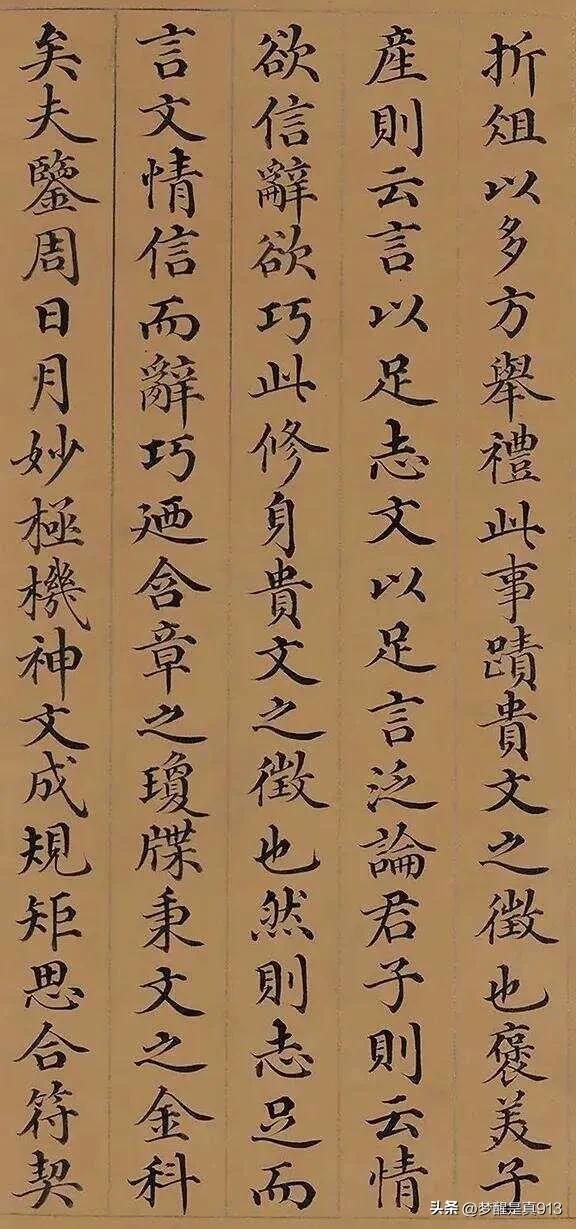 折俎以多方舉禮此事蹟貴文之徵也褒美子
產則云言以足志文以足言泛論君子則云情
欲信辭欲巧此修身貴文之徵也然則志足而
言文情信而辭巧廼含章之瓊牒秉文之金科
矣夫鑒周日月妙極機神文成規矩思合符契
头条 @梦醒是真913